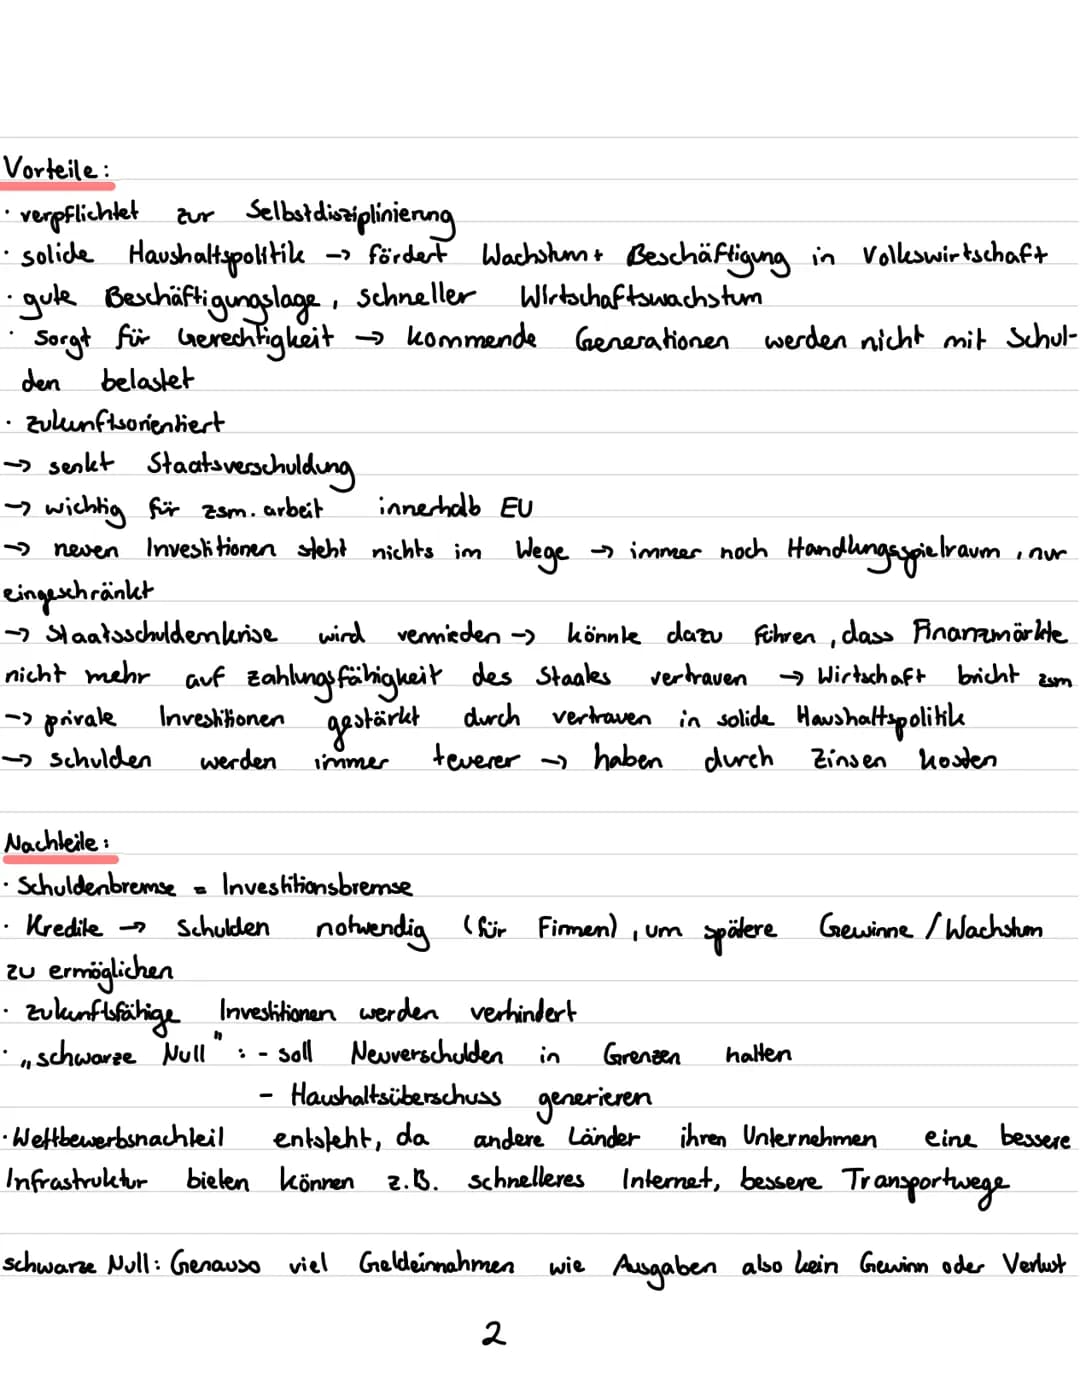 Vorteile:
· verpflichtet zur Selbstdisziplinierung
· solide Haushaltspolitik -> fördert Wachstum + Beschäftigung in Volkswirtschaft
· gute Beschäftigungslage, schneller Wirtschaftswachstum
· Sorgt für Gerechtigkeit -> kommende Generationen werden nicht mit Schul-
den belastet
· zukunftsorientiert
-> senkt Staatsverschuldung
-> wichtig für zsm. arbeit innerhalb EU
-> neuen Investitionen steht nichts im Wege -> immer noch Handlungsspielraum, nur
eingeschränkt
-> Staatsschuldemkrise wird vermieden -> könnte dazu führen, dass Finanzmärkte
nicht mehr auf Zahlungsfähigkeit des Staates vertrauen -> Wirtschaft bricht zsm
-> private Investitionen gestärkt durch vertrauen in solide Haushaltspolitik
-> schulden werden immer teuerer -> haben durch Zinsen kosten
Nachteile:
· Schuldenbremse = Investitionsbremse
· Kredite -> Schulden notwendig (für Firmen), um spätere Gewinne / Wachstum
zu ermöglichen
· zukunftsfähige Investitionen werden verhindert
· „schwarze Null": - soll Neuverschulden in Grenzen halten
- Haushaltsüberschuss generieren
· Wettbewerbsnachteil entsteht, da andere Länder ihren Unternehmen eine bessere
Infrastruktur bieten können z.B. schnelleres Internet, bessere Transportwege
schwarze Null: Genauso viel Geldeinnahmen wie Ausgaben also kein Gewinn oder Verlust
2